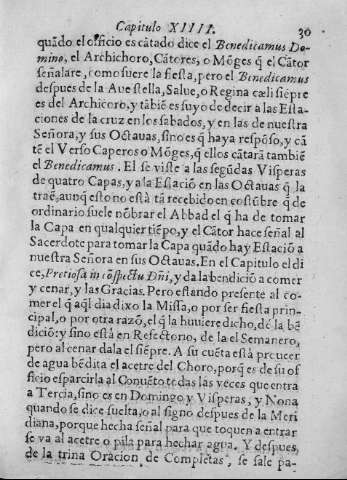 Capitulo XIIII. 30
quãdo el officio es cãtado dice el Benedicamus Do-
mino, el Archichoro, Cãtores, o Mõges q̃ el Cãtor
señalare, como fuere la fiesta, pero el Benedicamus
despues de la Aue stella, Salue, o Regina cæli siẽpre
es del Archicoro, y tãbiẽ es suyo de decir a las Esta
ciones de la cruz en los sabados, y en las de nuestra
Señora, y sus Octauas, sino es q̃ haya respõso, y cã
tẽ el Verso Caperos o Mõges, q̃ ellos cãtarã tambiẽ
el Benedicamus. El se viste a las segũdas Visperas
de quatro Capas, y a la Estaciõ en las Octauas q̃ la
traẽ, aunq̃ esto no està tã recebido en costũbre q̃ de
ordinario suele nõbrar el Abbad el q̃ ha de tomar
la Capa en qualquier tiẽpo, y el Cãtor hace señal al
Sacerdote para tomar la Capa quãdo hay Estaciõ a
nuestra Señora en sus Octauas. En el Capitulo el di
ce, Pretiosa in cõspectu Dñi, y da la bendiciõ a comer
y cenar, y las Gracias. Pero estando presente al co-
mer el q̃ aq̃l dia dixo la Missa, o por ser fiesta prin-
cipal, o por otra razõ, el q̃ la huuiere dicho, dẽ la bẽ
diciõ: y sino està en Refectorio, de la el Semanero,
pero al cenar dala el siẽpre. A su cuẽta està proueer
de agua bẽdita el acetre del Choro, porq̃ es de su of
ficio esparcirla al Conuẽto todas las veces que entra
a Tercia, sino es en Domingo y Visperas, y Nona
quando se dice suelta, o al signo despues de la Meri
diana, porque hecha señal para que toquen a entrar
se va al acetre o pila para hechar agua. Y despues,
de la trina Oracion de Completas, se sale pa-